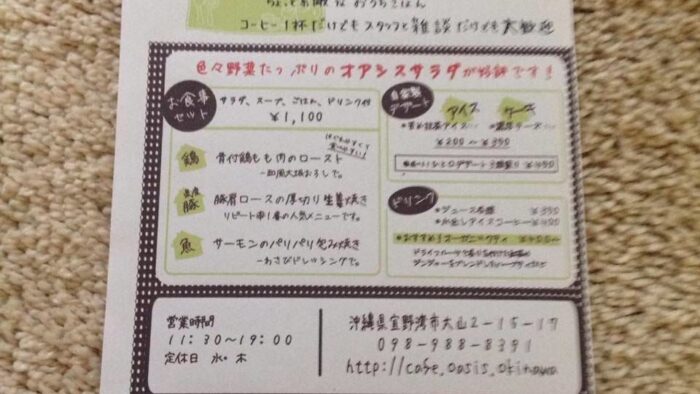 コーヒー1杯だけでもスタッフと雑談だけでも大歓迎
色々野菜たっぷりのオアシスサラダが好評です!
お食事セット
サラダ、スープ、ごはん、ドリンク付
¥1,100
鶏
骨付鶏もも肉のロースト
豚
豚肩ロースの厚切り生姜焼き
リピート率1番の人気メニューです。
魚
サーモンのパリパリ包み焼き
―わさびドレッシングで。
自家製デザート
アイス
ケーキ
¥200〜¥350
ドリンク
・ジュース各種 ¥350
・水出しアイスコーヒー ¥400
・おすすめ!オーガニックティ
営業時間
11:30〜19:00
定休日 水・木
沖縄県宜野湾市大山2-15-17
098-988-8391
http://cafe.oasis.okinawa